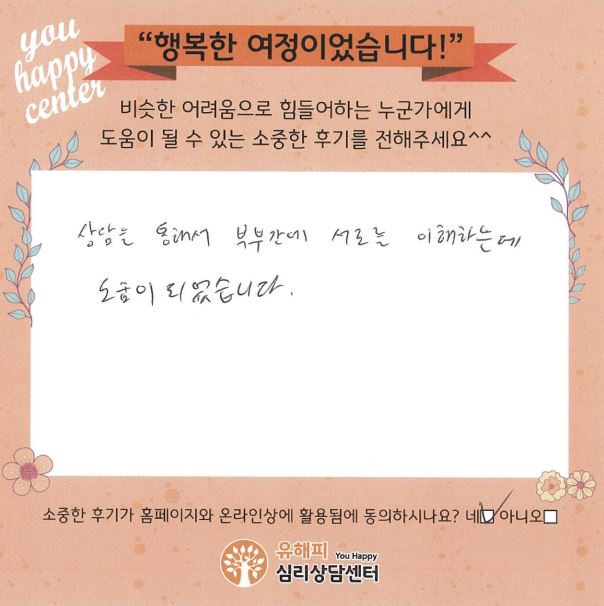 you
happy
center
“행복한 여정이었습니다!”
비슷한 어려움으로 힘들어하는 누군가에게
도움이 될 수 있는 소중한 후기를 전해주세요^^
상담을 통해서 부부간에 서로를 이해하는데
도움이 되었습니다.
소중한 후기가 홈페이지와 온라인상에 활용됨에 동의하시나요? 네☑ 아니오☐
유해피 You Happy
심리상담센터